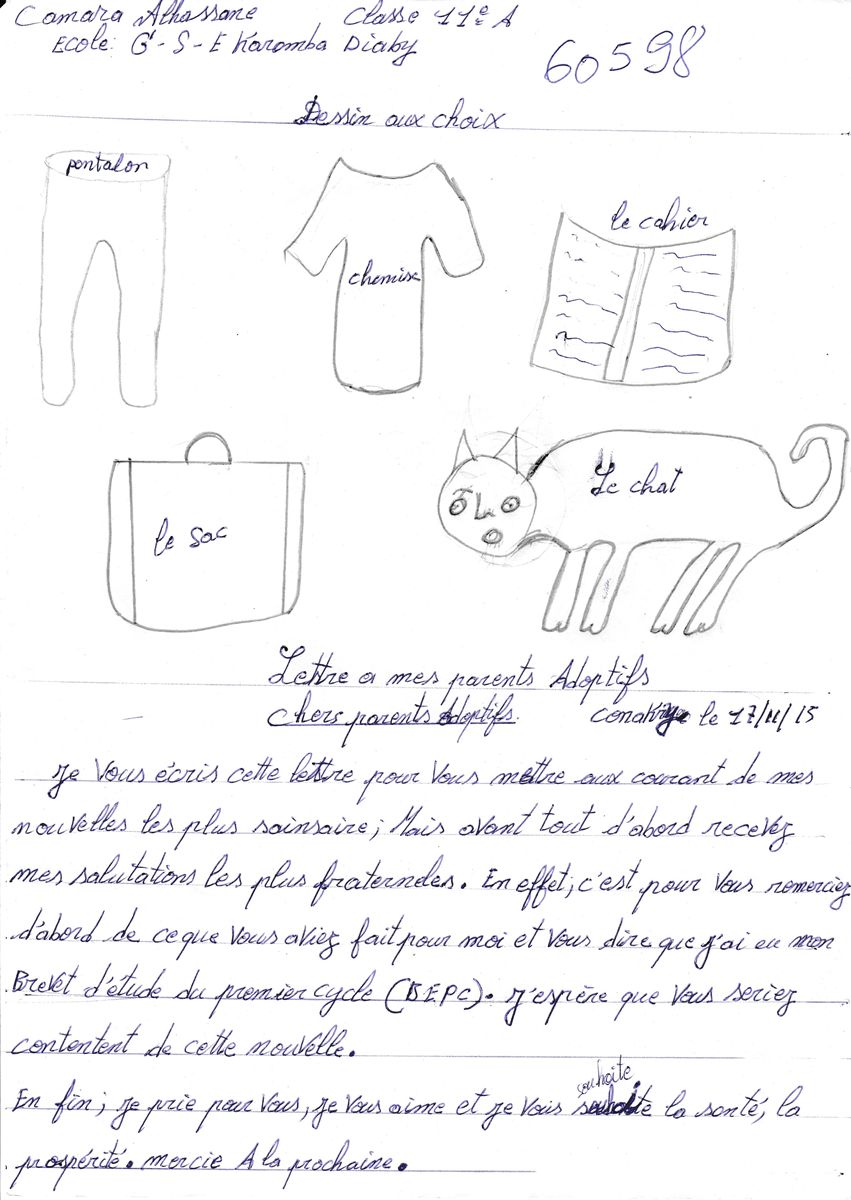 Camara Alhassane Classe 11e A
Ecole: G-S-E Karamba Diaby
60598
Dessin aux choix
pantalon
chemise
le cahier
le sac
Le chat
Lettre a mes parents Adoptifs
chers parents Adoptifs. Conakrye le 17/11/15
Je Vous écris cette lettre pour Vous mettre aux courant de mes
nouvelles les plus sainsaire; Mais avant tout d'abord recevez
mes salutations les plus fraterneles. En effet; c'est pour Vous remerciez
d'abord de ce que Vous aviez fait pour moi et Vous dire que j'ai eu mon
Brevet d'étude du premier cycle (BEPC). J'espère que Vous seriez
contentent de cette nouvelle.
En fin; je prie pour Vous, je Vous aime et je Vous souhaite souhaite la santé, la
prospérité. mercie A la prochaine.